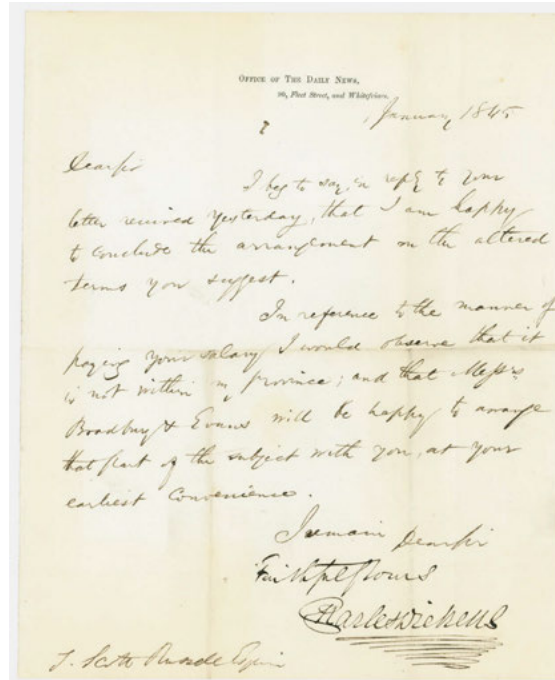 OFFICE OF THE DAILY NEWS,
90, Fleet Street, and Whitefriars.
January 1845
Dear Sir
I beg to say, in reply to your
letter received yesterday, that I am happy
to conclude the arrangement on the altered
terms you suggest.
In reference to the manner of
paying your salary I would observe that it
is not within my province; and that Messrs
Bradbury & Evans will be happy to arrange
that part of the subject with you, at your
earliest convenience.
I remain Dear Sir
Faithfully Yours
Charles Dickens
J. Scott Russell Esquire